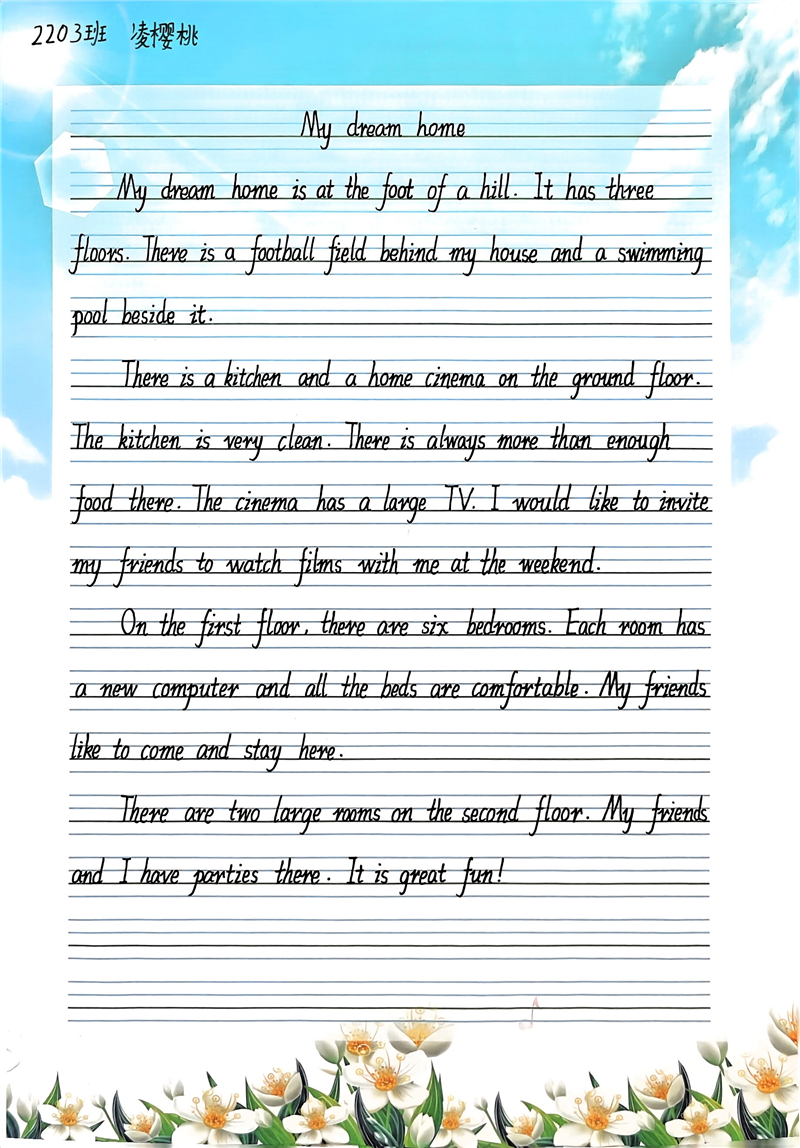 2203班 凌樱桃
My dream home
My dream home is at the foot of a hill. It has three
floors. There is a football field behind my house and a swimming
pool beside it.
There is a kitchen and a home cinema on the ground floor.
The kitchen is very clean. There is always more than enough
food there. The cinema has a large TV. I would like to invite
my friends to watch films with me at the weekend.
On the first floor, there are six bedrooms. Each room has
a new computer and all the beds are comfortable. My friends
like to come and stay here.
There are two large rooms on the second floor. My friends
and I have parties there. It is great fun!